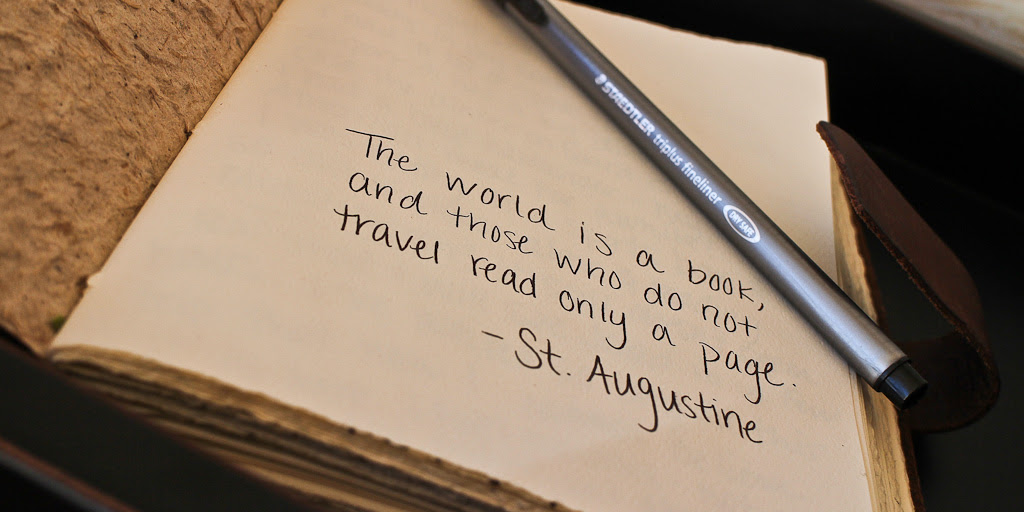 The world is a book,
and those who do not
travel read only a page.
- St. Augustine
STAEDTLER triplus fineliner
DRY SAFE